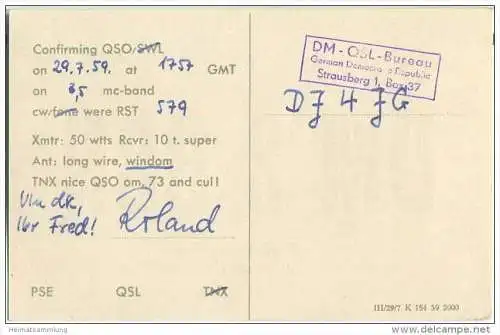 Confirming QSO/SWL
on 29.7.59. at 1757 GMT
on 3,5 mc-band
cw/fone were RST 579
Xmtr: 50 wtts Rcvr: 10 t. super
Ant: long wire, windom
TNX nice QSO om, 73 and cul!
Vln dk,
lbr Fred! Roland
PSE QSL TNX
DM-QSL-Bureau
German Democratic Republic
Strausberg 1, Box 37
DJ4JG
III/29/7 K 154 59 2000
Heimatsammlung
www.delcampe.net